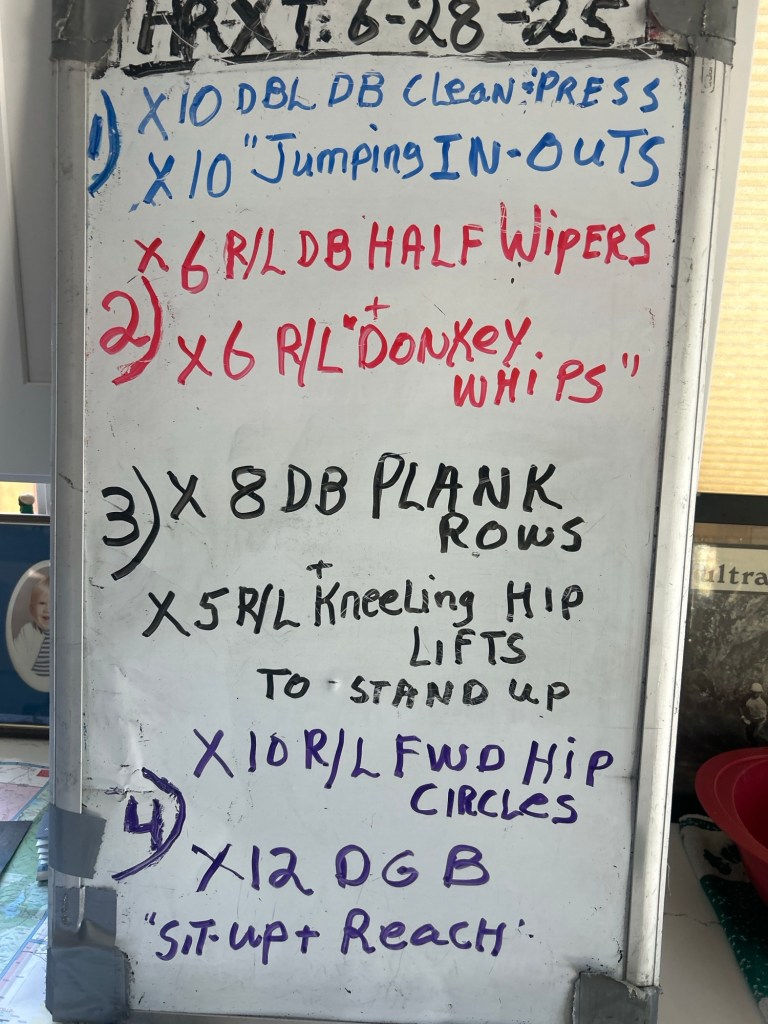 HRXT: 6-28-25
1) X10 DBL DB Clean & PRESS
X10 "Jumping IN-OUTS
X6 R/L DB HALF WIPERS
+
2) X6 R/L "DONKEY
WHIPS"
3) X 8 DB PLANK
ROWS
+
X5 R/L Kneeling HIP
LIFTS
TO - STAND UP
X10 R/L FWD HIP
CIRCLES
4)
X12 DGB
"SIT-UP + REACH"
ultra